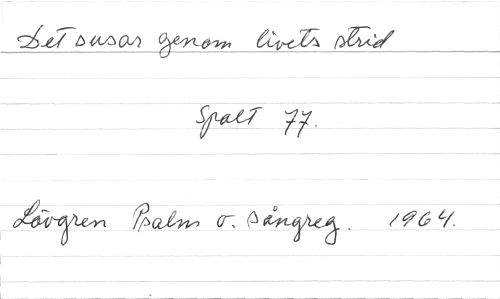 Det susar genom livets strid
Spalt 77.
Lövgren Psalm o. sångreg. 1964.